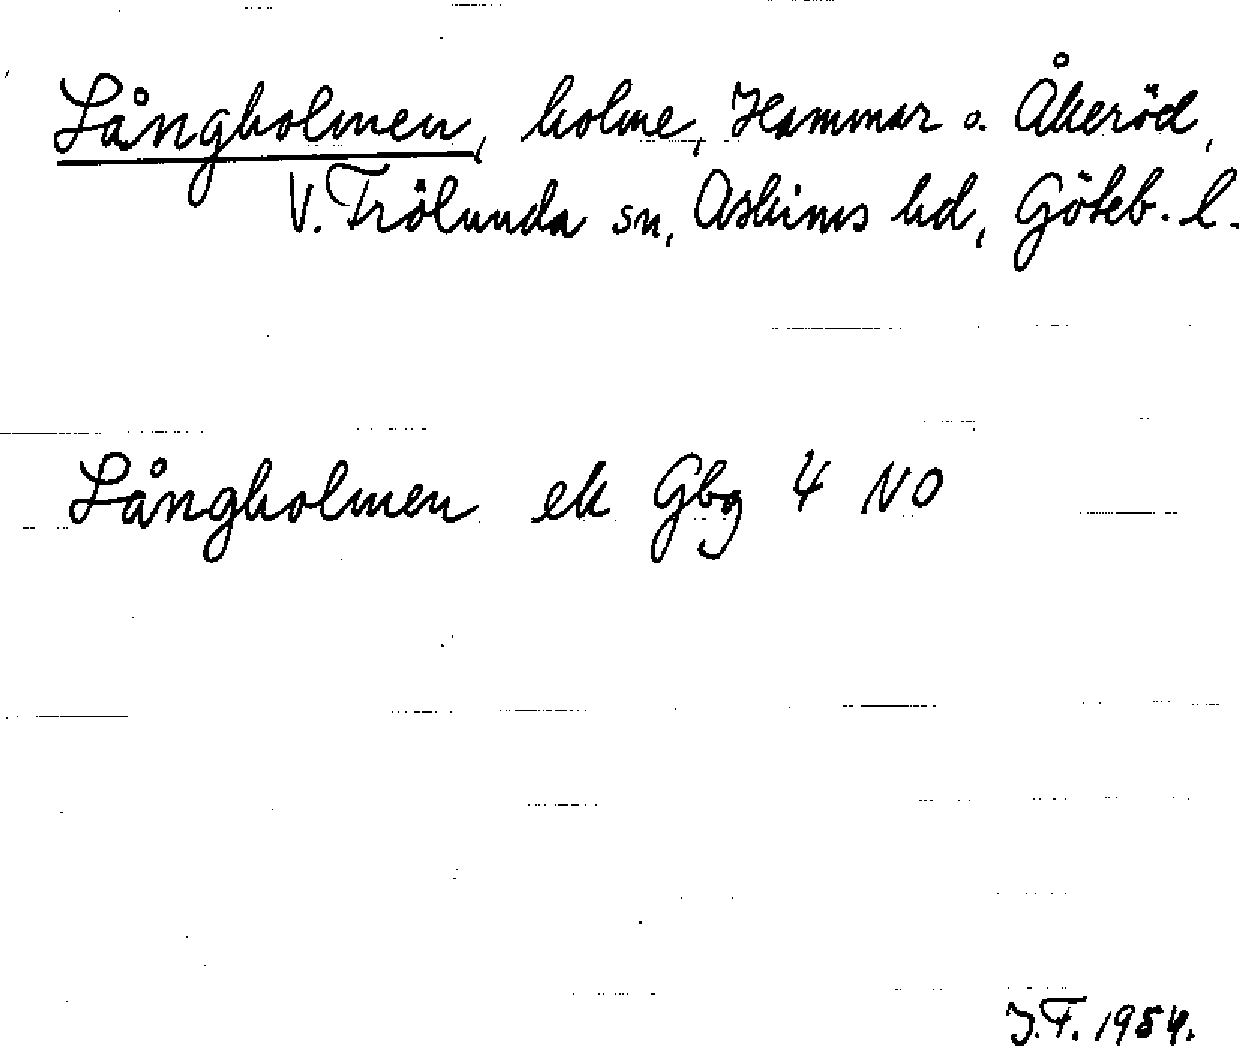 Långholmen, holme, Hammar o. Åkeröd,
V. Frölunda sn, Askims hd, Göteb. l.
Långholmen ek Gbg 4 NO
J.F. 1954.